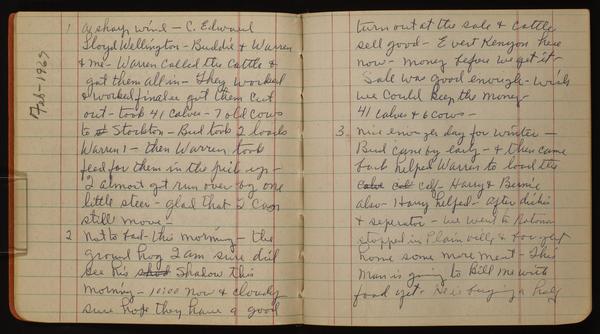 Feb - 1963
1 a sharp wind - C. Edward
Lloyd Wellington - Buddie & Warren
& me - Warren called the cattle &
got them all in - They worked
& worked finalee got them cut
out - took 41 calves - 7 old cows
to Stockton - Bud took 2 loads
Warren 1 - then Warren took
feed for them in the pick up -
I almost got run over by one
little steer - glad that I can
still move -
2 Not to bad - this morning - the
ground hog I am sure did
see his shod Shadow this
morning - 10:00 now & cloudy
sure hope they have a good
turn out at the sale & cattle
sell good - Evert Kenyon here
now - money before we get it -
Sale was good enough - wish
we could keep the money -
41 calves & 6 cows -
3 nice enough day for winter -
Bud came by early - & then came
back helped Warren to load the
calve calf - Harry & Bernie
also - Harry helped - after dishes
& seperator - we went to
stopped in Plainville & bought
home some more meat - This
man is going to Bill me with
food yet - He is buying a half